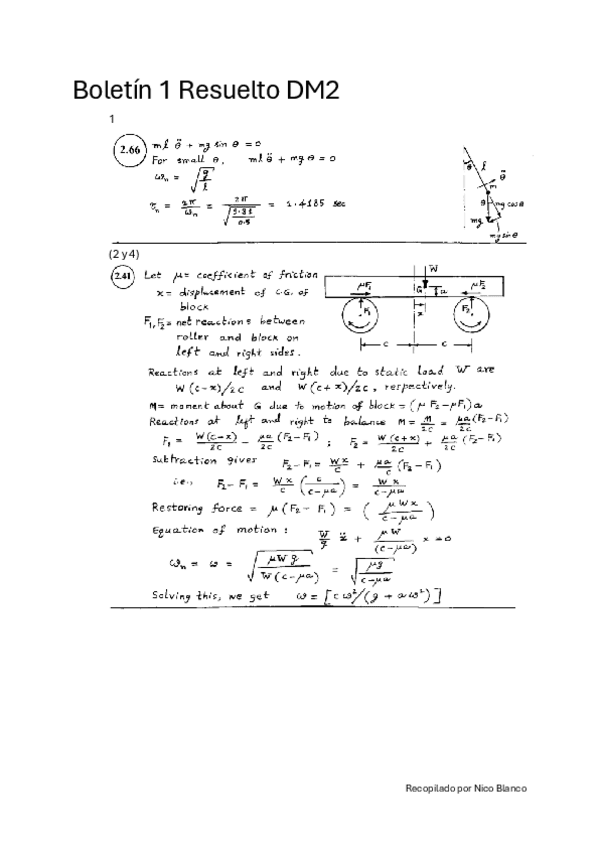 Boletín 1 Resuelto DM2
1
2.66
ml θ̈ + mg sin θ = 0
For small θ, ml θ̈ + mg θ = 0
ωn = √(g/l)
τn = 2π/ωn = 2π/√(9.81/0.5) = 1.4185 sec
θ l θ̈ m θ mg cos θ mg mg sin θ
(2 y 4)
2.41
Let μ = coefficient of friction
x = displacement of C.G. of
block
F1, F2 = net reactions between
roller and block on
left and right sides.
W μF1 G a μF2 F1 x F2 c c
Reactions at left and right due to static load W are
W(c-x)/2c and W(c+x)/2c, respectively.
M = moment about G due to motion of block = (μF2 - μF1)a
Reactions at left and right to balance M = M/2c = μa/2c (F2 - F1)
F1 = W(c-x)/2c - μa/2c (F2 - F1) ; F2 = W(c+x)/2c + μa/2c (F2 - F1)
Subtraction gives F2 - F1 = Wx/c + μa/c (F2 - F1)
i.e., F2 - F1 = Wx/c (c/(c-μa)) = Wx/(c-μa)
Restoring force = μ(F2 - F1) = (μWx/(c-μa))
Equation of motion: W/g ẍ + μW/(c-μa) x = 0
ωn = ω = √(μWg/(W(c-μa))) = √(μg/(c-μa))
Solving this, we get ω = [c ω²/(g + a ω²)]
Recopilado por Nico Blanco